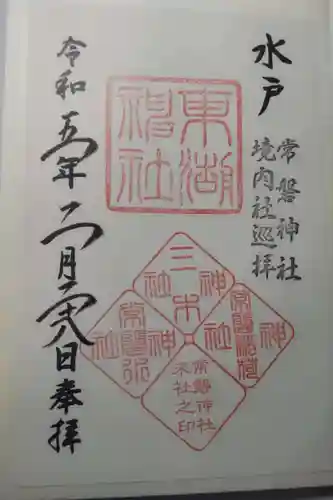 水戸
常磐神社
境内社巡拝
東湖
神社
三木
神社
神社
常磐稲荷
神社
常磐神社
末社之印
令和五年二月二八日奉拝